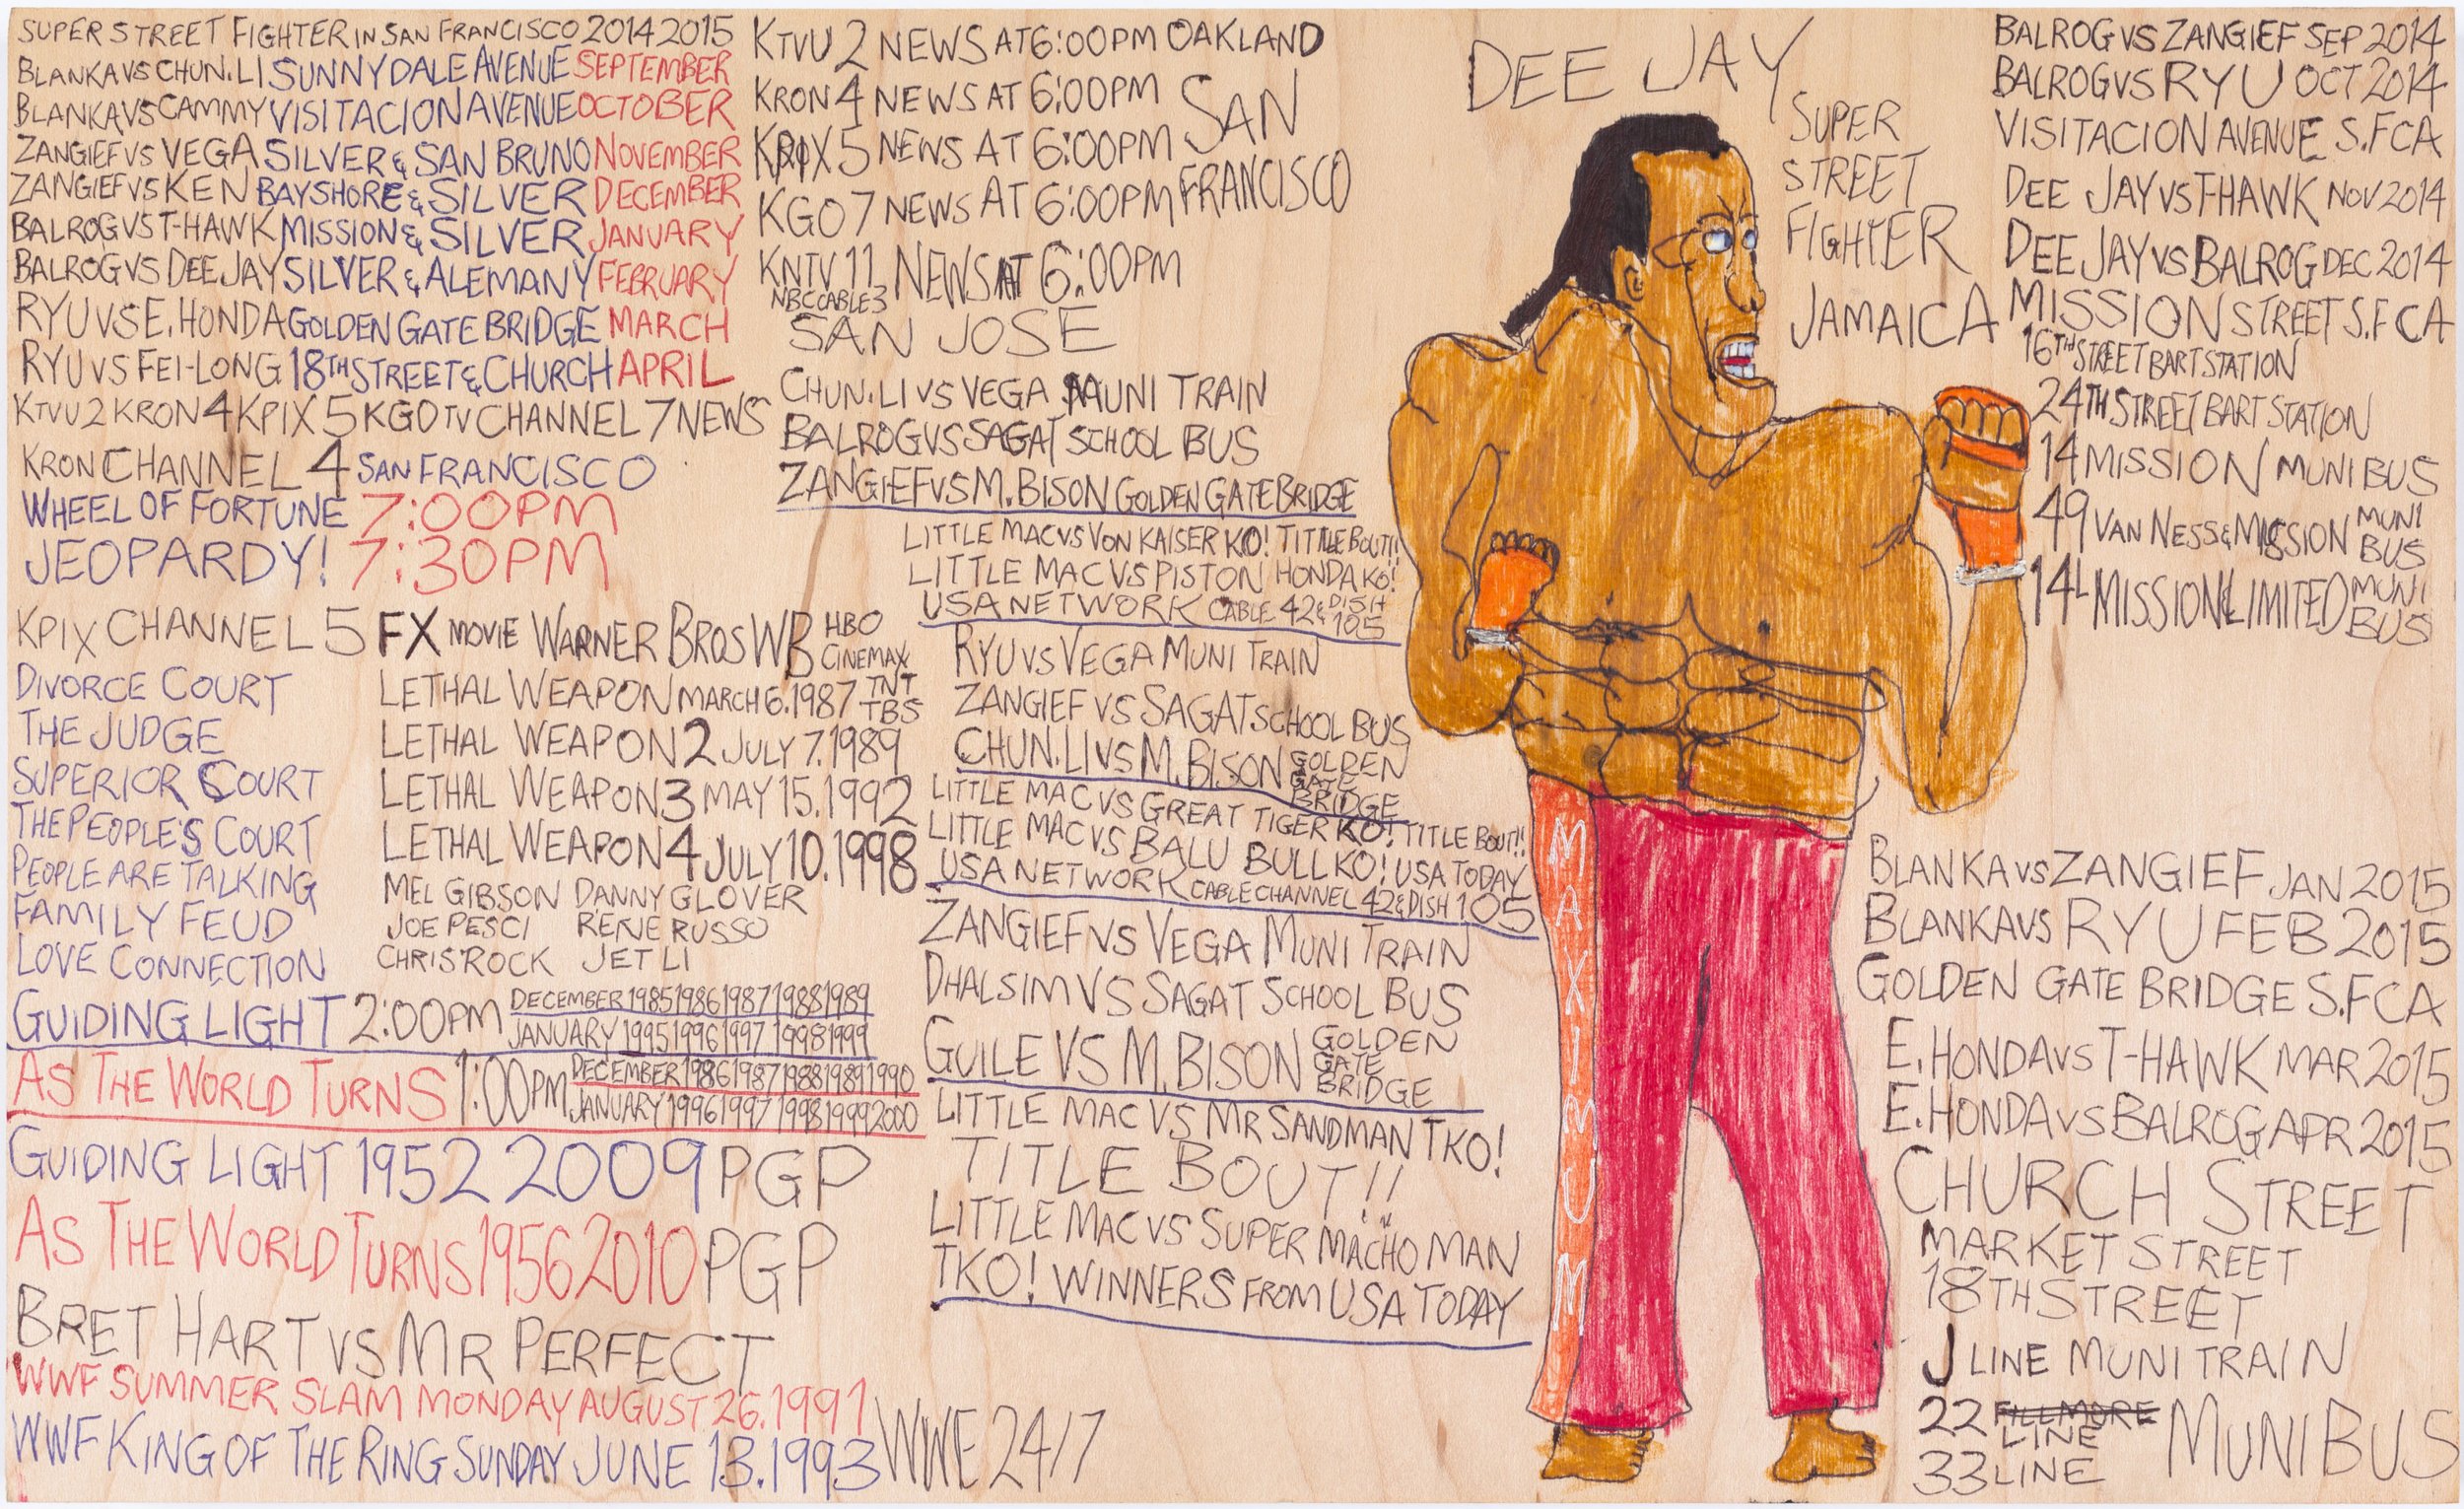 SUPER STREET FIGHTER IN SAN FRANCISCO 2014 2015
BLANKA VS CHUN.LI SUNNYDALE AVENUE SEPTEMBER
BLANKA VS CAMMY VISITACION AVENUE OCTOBER
ZANGIEF VS VEGA SILVER & SAN BRUNO NOVEMBER
ZANGIEF VS KEN BAYSHORE & SILVER DECEMBER
BALROG VS T-HAWK MISSION & SILVER JANUARY
BALROG VS DEE JAY SILVER & ALEMANY FEBRUARY
RYU VS E.HONDA GOLDEN GATE BRIDGE MARCH
RYU VS FEI-LONG 18TH STREET & CHURCH APRIL
KTVU 2 KRON 4 KPIX 5 KGO TV CHANNEL 7 NEWS
KRON CHANNEL 4 SAN FRANCISCO
WHEEL OF FORTUNE 7:00PM
JEOPARDY! 7:30PM
KPIX CHANNEL 5
DIVORCE COURT
THE JUDGE
SUPERIOR COURT
THE PEOPLE'S COURT
PEOPLE ARE TALKING
FAMILY FEUD
LOVE CONNECTION
FX MOVIE WARNER BROS WB HBO
CINEMAX
LETHAL WEAPON MARCH 6.1987 TNT
TBS
LETHAL WEAPON 2 JULY 7.1989
LETHAL WEAPON 3 MAY 15.1992
LETHAL WEAPON 4 JULY 10.1998
MEL GIBSON DANNY GLOVER
JOE PESCI RENE RUSSO
CHRIS ROCK JET LI
GUIDING LIGHT 2:00PM DECEMBER 1985 1986 1987 1988 1989
JANUARY 1995 1996 1997 1998 1999
AS THE WORLD TURNS 1:00PM DECEMBER 1986 1987 1988 1989 1990
JANUARY 1996 1997 1998 1999 2000
GUIDING LIGHT 1952 2009 PGP
AS THE WORLD TURNS 1956 2010 PGP
BRET HART VS MR PERFECT
WWF SUMMER SLAM MONDAY AUGUST 26.1991
WWF KING OF THE RING SUNDAY JUNE 13.1993 WWE 24/7
KTVU 2 NEWS AT 6:00PM OAKLAND
KRON 4 NEWS AT 6:00PM SAN
KPIX 5 NEWS AT 6:00PM
KGO 7 NEWS AT 6:00PM FRANCISCO
KNTV 11 NEWS AT 6:00PM
NBC CABLE 3
SAN JOSE
CHUN.LI VS VEGA MUNI TRAIN
BALROG VS SAGAT SCHOOL BUS
ZANGIEF VS M.BISON GOLDEN GATE BRIDGE
LITTLE MAC VS VON KAISER KO! TITTLE BOUT!!
LITTLE MAC VS PISTON HONDA KO!
USA NETWORK CABLE 42 & DISH
105
RYU VS VEGA MUNI TRAIN
ZANGIEF VS SAGAT SCHOOL BUS
CHUN.LI VS M.BISON GOLDEN
GATE
BRIDGE
LITTLE MAC VS GREAT TIGER KO! TITLE BOUT!!
LITTLE MAC VS BALU BULL KO! USA TODAY
USA NETWORK CABLE CHANNEL 42 & DISH 105
ZANGIEF VS VEGA MUNI TRAIN
DHALSIM VS SAGAT SCHOOL BUS
GUILE VS M.BISON GOLDEN
GATE
BRIDGE
LITTLE MAC VS MR SANDMAN TKO!
TITLE BOUT!!
LITTLE MAC VS SUPER MACHO MAN
TKO! WINNERS FROM USA TODAY
DEE JAY
SUPER
STREET
FIGHTER
JAMAICA
MAXIMUM
BALROG VS ZANGIEF SEP 2014
BALROG VS RYU OCT 2014
VISITACION AVENUE S.F CA
DEE JAY VS T-HAWK NOV 2014
DEE JAY VS BALROG DEC 2014
MISSION STREET S.F CA
16TH STREET BART STATION
24TH STREET BART STATION
14 MISSION MUNI BUS
49 VAN NESS & MISSION MUNI
BUS
14L MISSION LIMITED MUNI
BUS
BLANKA VS ZANGIEF JAN 2015
BLANKA VS RYU FEB 2015
GOLDEN GATE BRIDGE S.F CA
E.HONDA VS T-HAWK MAR 2015
E.HONDA VS BALROG APR 2015
CHURCH STREET
MARKET STREET
18TH STREET
J LINE MUNI TRAIN
22 FILLMORE
LINE MUNI BUS
33 LINE